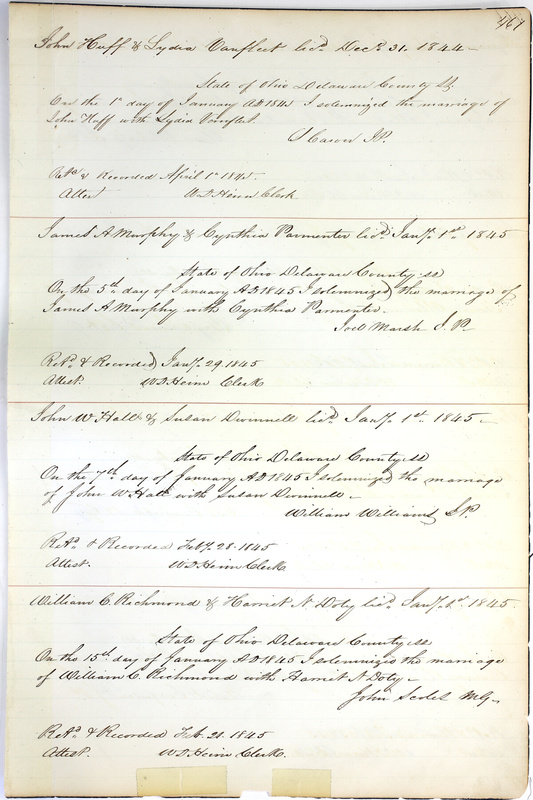 467
John Huff & Lydia Vanfleet lic'd Dec'r 31. 1844
State of Ohio Delaware County SS
On the 1st day of January AD 1845 I solemnized the marriage of
John Huff with Lydia Vanfleet.
Carver JP.
Ret'd & Recorded April 1st 1845.
Attest W D Heim Clerk
James A Murphy & Cynthia Parmenter lic'd Jan'y. 1st 1845
State of Ohio Delaware County SS
On the 5th day of January AD 1845 I solemnized the marriage of
James A Murphy with Cynthia Parmenter.
Joel Marsh J. P.
Ret'd & Recorded Jan'y. 29. 1845
Attest. W D Heim Clerk
John W Hall & Susan Dwinnell lic'd Jan'y. 1st. 1845
State of Ohio Delaware County SS
On the 7th day of January AD 1845 I solemnized the marriage
of John W Hall with Susan Dwinnell
William Williams J.P.
Ret'd & Recorded Feb'y. 28. 1845
Attest. W D Heim Clerk
William C. Richmond & Harriet N Doty lic'd Jan'y. 1st. 1845.
State of Ohio Delaware County SS
On the 15th day of January AD 1845 I solemnized the marriage
of William C. Richmond with Harriet N Doty
John MG
Ret'd & Recorded Feb. 21. 1845
Attest. W D Heim Clerk.